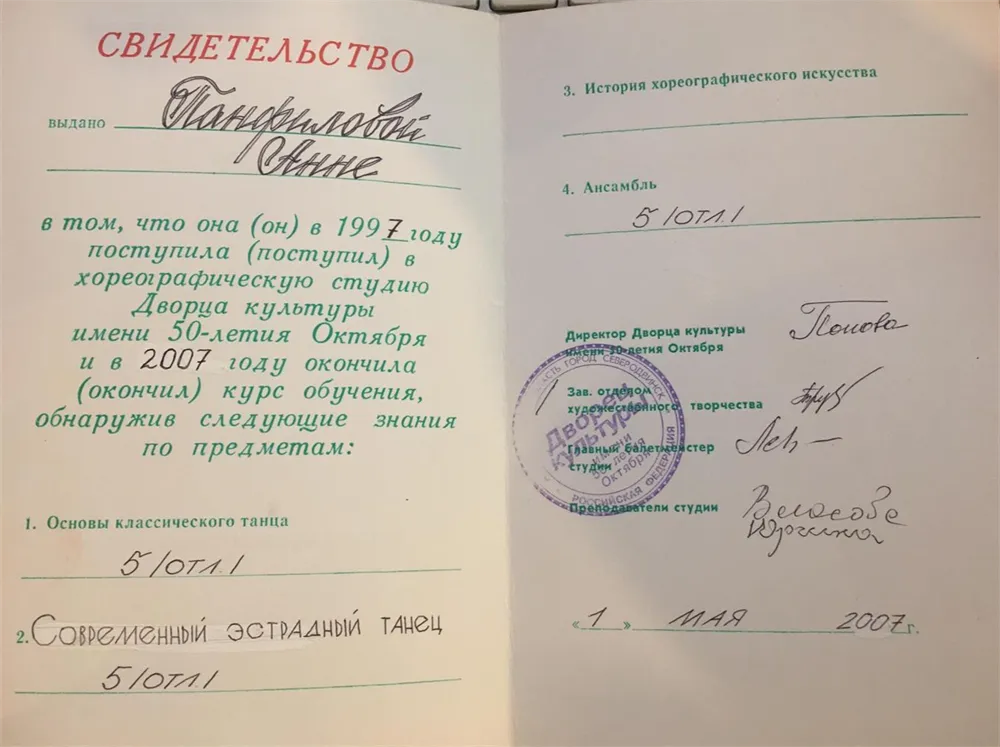 СВИДЕТЕЛЬСТВО
выдано Панфиловой
Анне
в том, что она (он) в 1997 году
поступила (поступил) в
хореографическую студию
Дворца культуры
имени 50-летия Октября
и в 2007 году окончила
(окончил) курс обучения,
обнаружив следующие знания
по предметам:
1. Основы классического танца
5 /отл./
2. Современный эстрадный танец
5 /отл./
3. История хореографического искусства
4. Ансамбль
5 /отл./
Директор Дворца культуры Попова
имени 50-летия Октября
Зав. отделом
художественного творчества
Главный балетмейстер
студии
Преподаватели студии Власова
«1» МАЯ 2007 г.
ГОРОД СЕВЕРОДВИНСК
РОССИЙСКАЯ ФЕДЕРАЦИЯ
Дворец
культуры
имени
50-летия
Октября